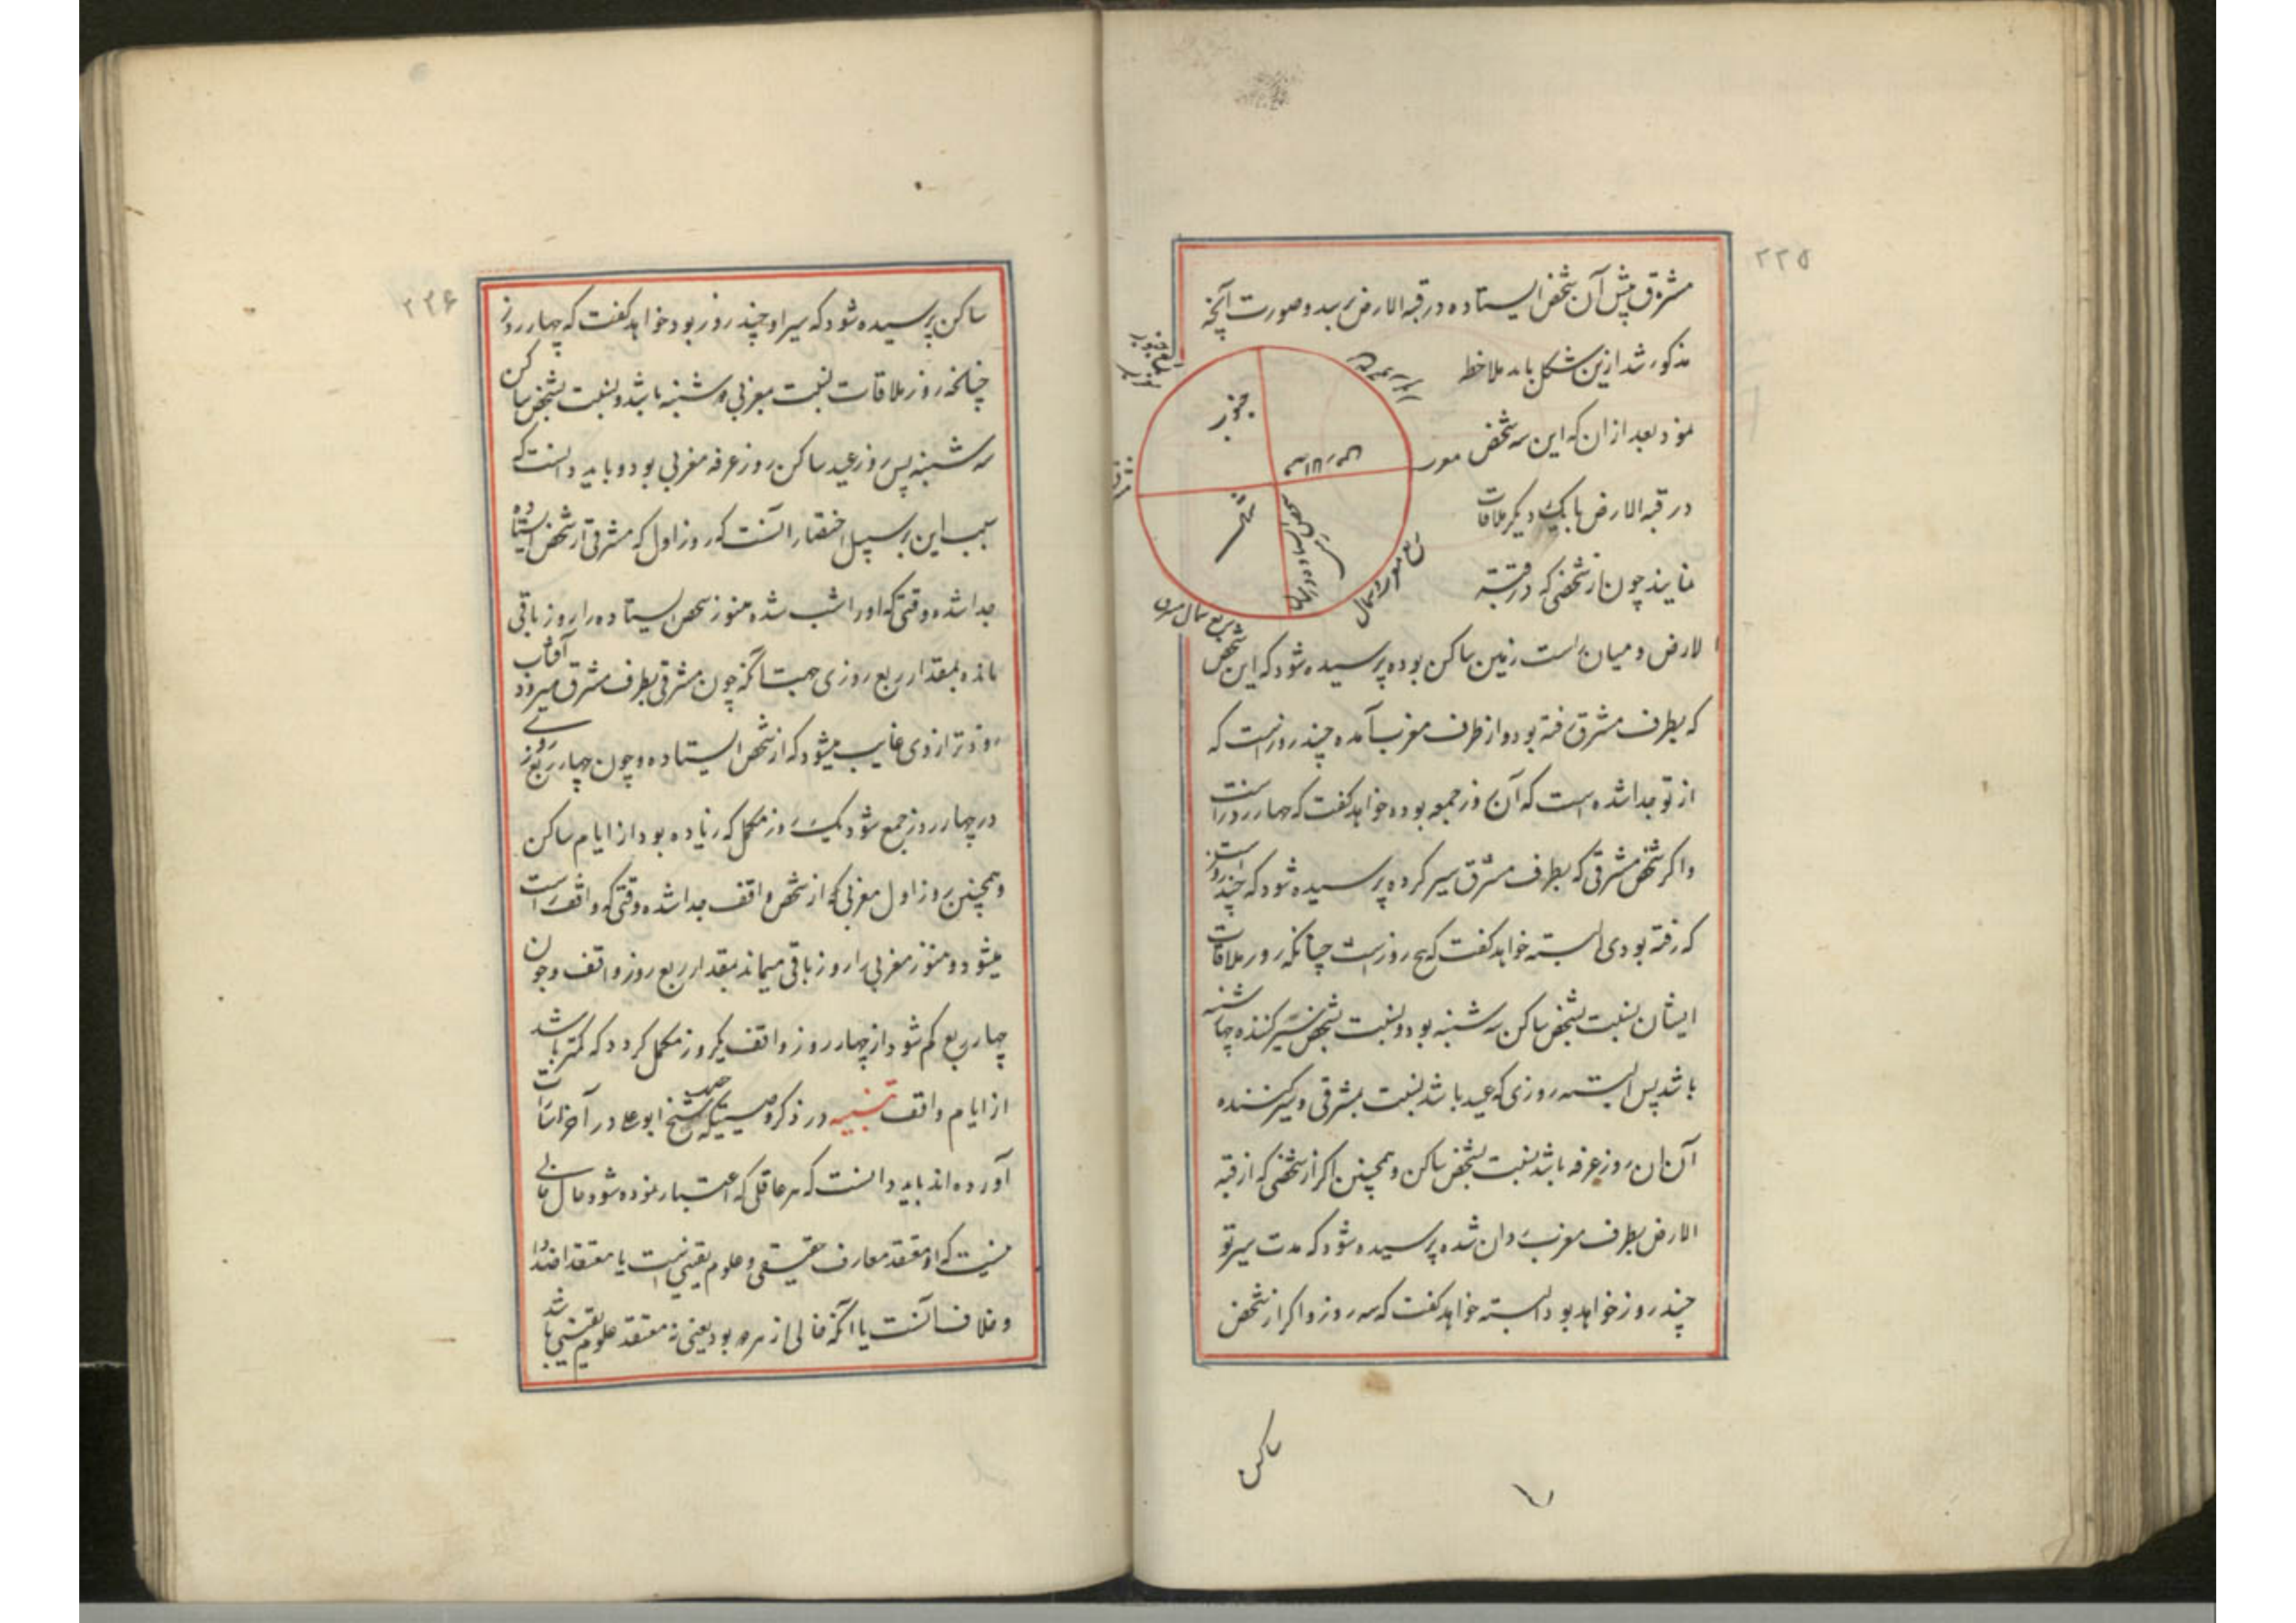 ۲۲۵
مشرق پیش آن شخص ایستاده در قبة الارض برسد و صورت آنچه
مذکور شد ازین شکل باید ملاحظه
نمود بعد از ان که این سه شخص
در قبة الارض با یک دیگر ملاقات
نمایند چون از شخصی که در قبة
الارض و میان راست زمین ساکن بوده پرسیده شود که این شخص
که بطرف مشرق رفته بود و از طرف مغرب آمده چند روز است که
از تو جدا شده است که آن روز جمعه بوده خواهد گفت که چهار روز است
و اگر شخص مشرقی که بطرف مشرق سیر کرده پرسیده شود که چند روز است
که رفته بودی البته خواهد گفت که پنج روز است چنانکه روز ملاقات
ایشان نسبت بشخص ساکن سه شنبه بود و نسبت بشخص سیر کننده چهارشنبه
باشد پس البته روزی که عید باشد نسبت بمشرقی و سیر کننده
آن ان روز عرفه باشد نسبت بشخص ساکن و همچنین اگر از شخصی که از قبة
الارض بطرف مغرب روان شده پرسیده شود که مدت سیر تو
چند روز خواهد بود البته خواهد گفت که سه روز و اگر از شخص
ساکن
جنوب
ربع جنوبی
مشرق
قبة الارض
ربع شمالی
۲۲۶
ساکن پرسیده شود که سیر او چند روز بود خواهد گفت که چهار روز
چنانچه روز ملاقات نسبت بمغربی دوشنبه باشد و نسبت بشخص ساکن
سه شنبه پس روز عید ساکن روز عرفه مغربی بود و باید دانست که
سبب این بر سبیل اختصار آنست که روز اول که مشرقی از شخص ایستاده
جدا شده وقتی که او را شب شده هنوز شخص ایستاده را روز باقی
مانده بمقدار ربع روزی جهت آنکه چون مشرقی بطرف مشرق میرود آفتاب
زودتر از وی غایب میشود که از شخص ایستاده و چون چهار ربع روزی
در چهار روز جمع شود یک روز مکمل که زیاده بود از ایام ساکن
و همچنین روز اول مغربی که از شخص واقف جدا شده وقتی که واقف راست
میشود و هنوز مغربی را روز باقی میماند بمقدار ربع روز واقف و چون
چهار ربع کم شود از چهار روز واقف یکروز مکمل گردد که کمتر باشد
از ایام واقف تنبیه در ذکر وصیتی که شیخ ابو علی در آخر اشارات
آورده اند باید دانست که هر عاقلی که اعتبار نموده شود حال خالی
نیست که او معتقد معارف حقیقی و علوم یقینی است یا معتقد اضداد
و خلاف آنست یا آنکه خالی از هر دو بود یعنی نه معتقد علوم یقینی باشد